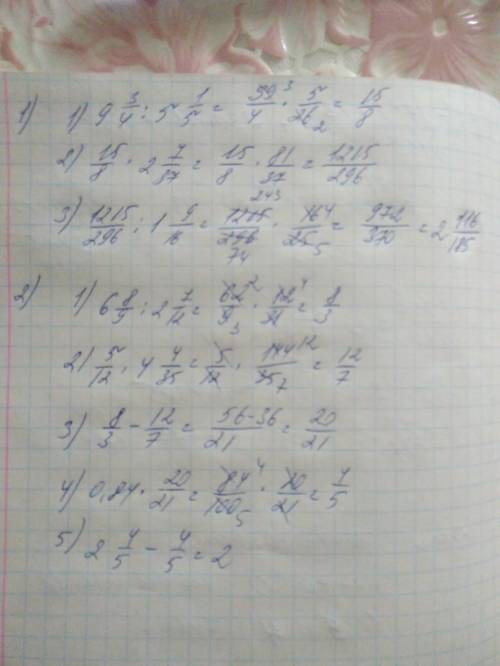 1) 1) 9 3/4 : 5 1/5 = 39³/4 · 5/26₂ = 15/8
2) 15/8 · 2 7/37 = 15/8 · 81/37 = 1215/296
3) 1215/296 : 1 9/16 = 1215²⁴³/296₇₄ · 16⁴/25₅ = 972/370 = 2 116/185
2) 1) 6 8/9 : 2 7/12 = 62²/9₃ · 12⁴/31 = 8/3
2) 5/12 · 4 4/35 = 5/12 · 144¹²/35₇ = 12/7
3) 8/3 - 12/7 = 56-36/21 = 20/21
4) 0,84 · 20/21 = 84⁴/100₅ · 20/21 = 4/5
5) 2 4/5 - 4/5 = 2